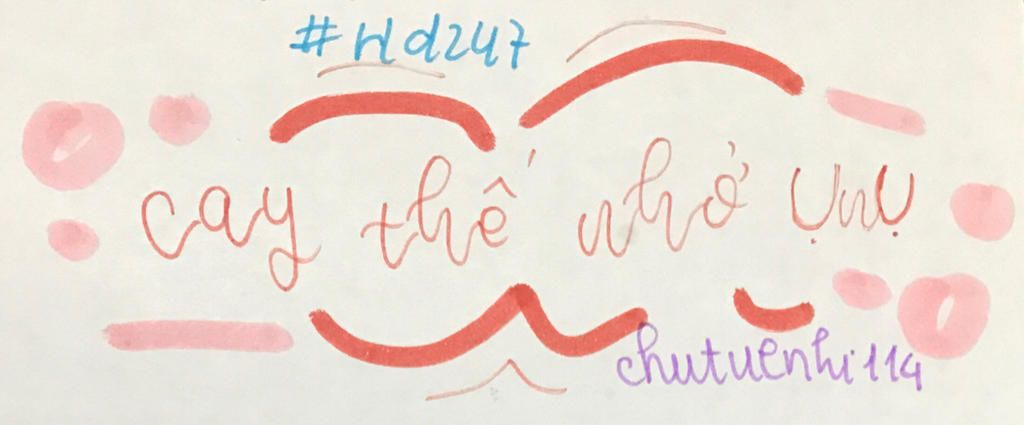 #Hd247
cay thế nhở ụnụ
chutuenhi114